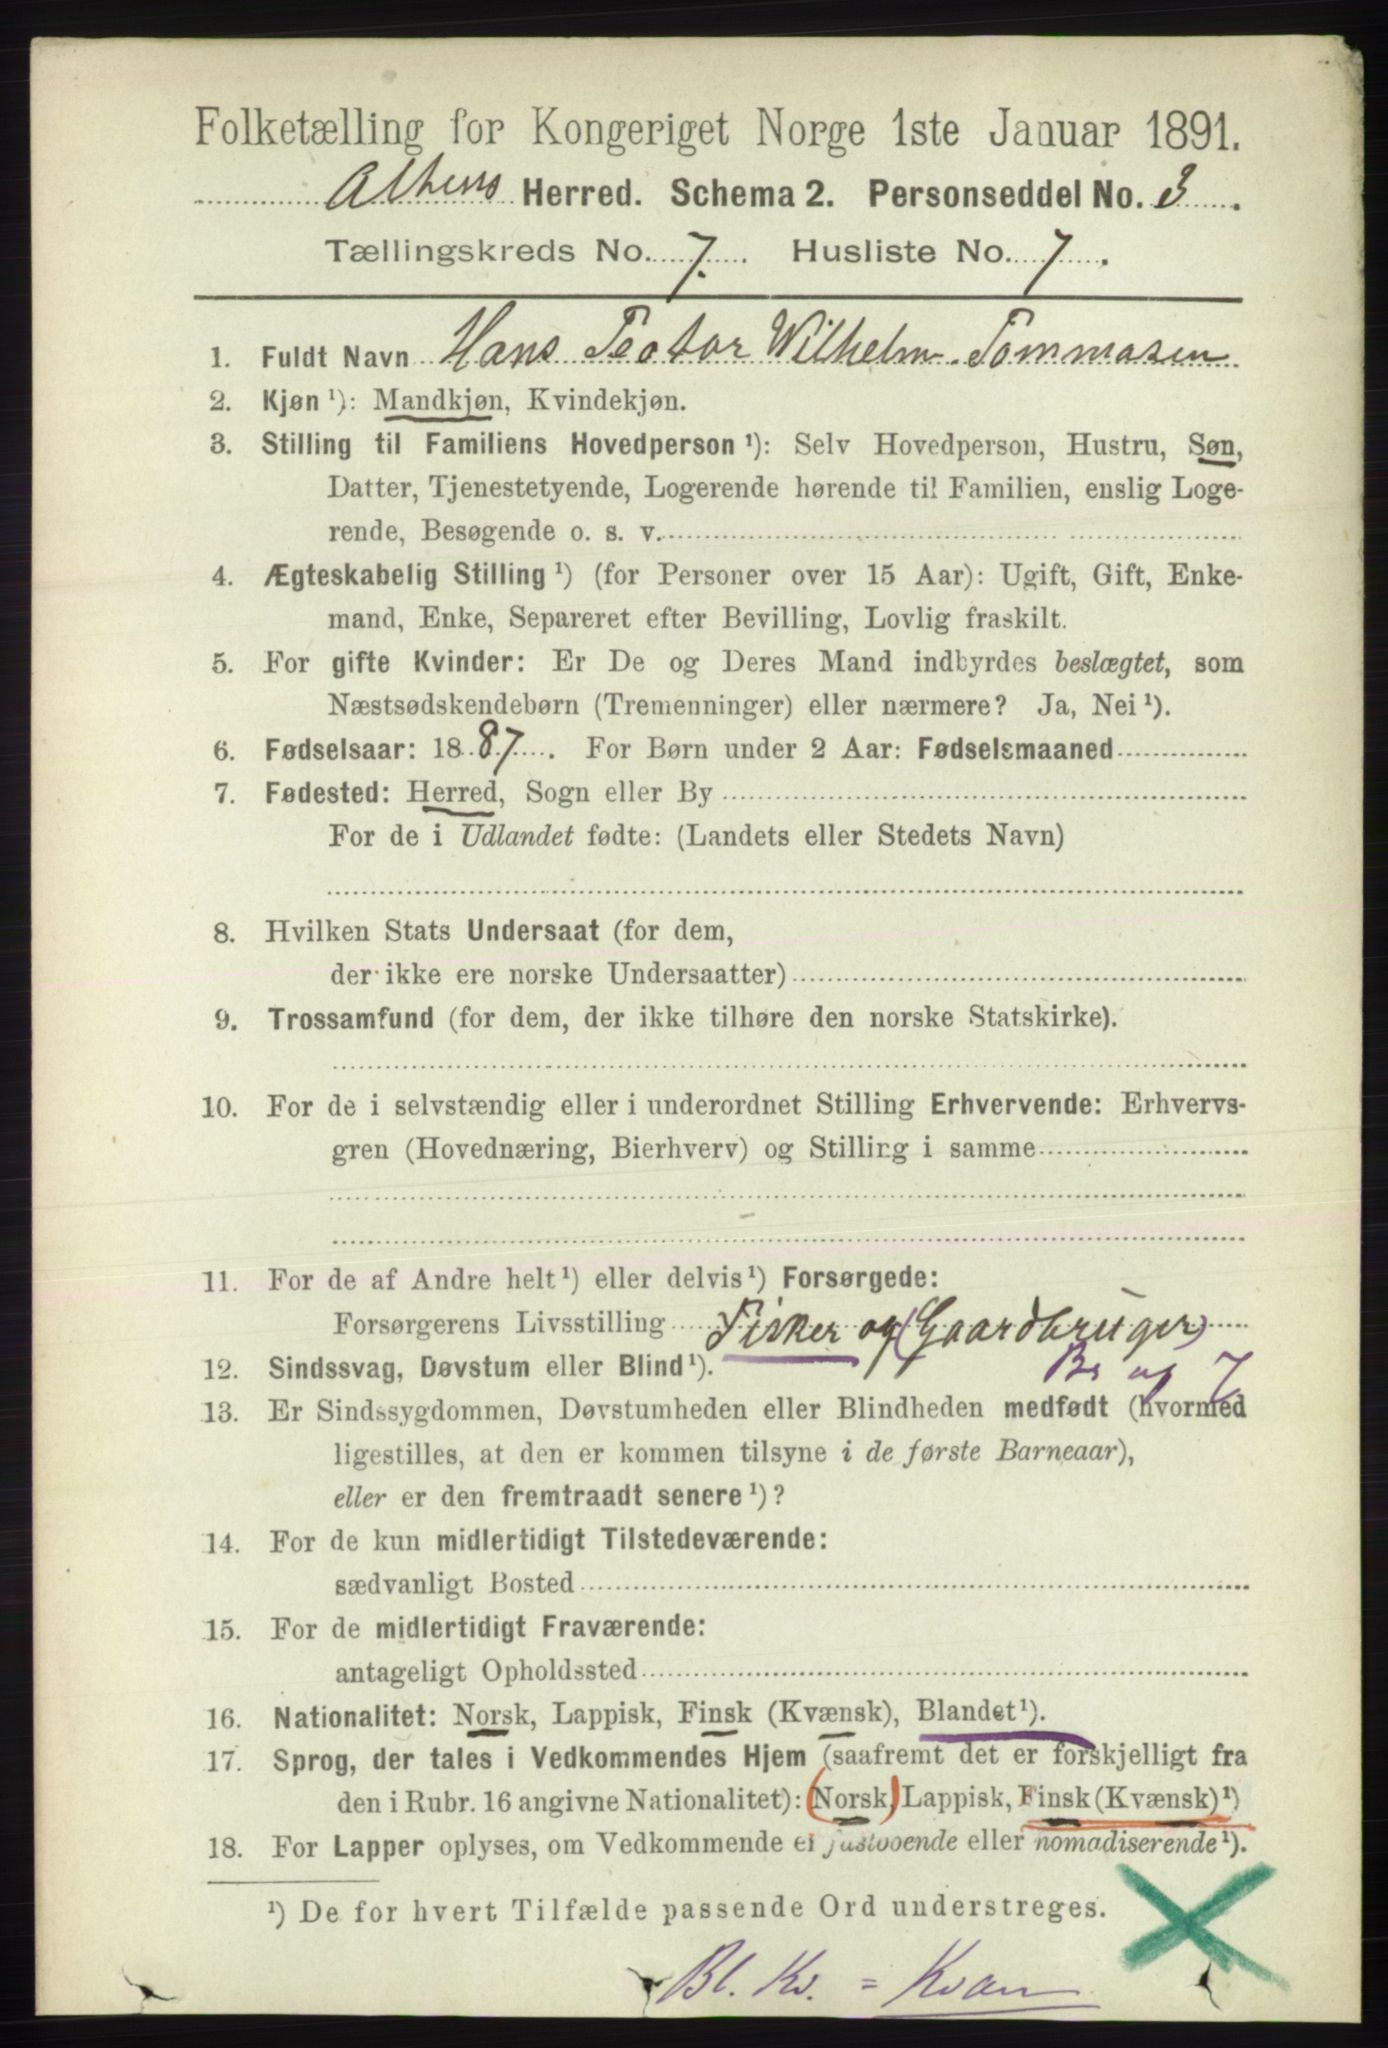 Folketælling for Kongeriget Norge 1ste Januar 1891.
Altens Herred. Schema 2. Personseddel No. 3.
Tællingskreds No. 7. Husliste No. 7.
1. Fuldt Navn Hans Teodor Wilhelm Tommasen
2. Kjøn ¹): Mandkjøn, Kvindekjøn.
3. Stilling til Familiens Hovedperson ¹): Selv Hovedperson, Hustru, Søn,
Datter, Tjenestetyende, Logerende hørende til Familien, enslig Loge-
rende, Besøgende o. s. v.
4. Ægteskabelig Stilling ¹) (for Personer over 15 Aar): Ugift, Gift, Enke-
mand, Enke, Separeret efter Bevilling, Lovlig fraskilt.
5. For gifte Kvinder: Er De og Deres Mand indbyrdes beslægtet, som
Næstsødskendebørn (Tremenninger) eller nærmere? Ja, Nei ¹).
6. Fødselsaar: 1887. For Børn under 2 Aar: Fødselsmaaned
7. Fødested: Herred, Sogn eller By
For de i Udlandet fødte: (Landets eller Stedets Navn)
8. Hvilken Stats Undersaat (for dem,
der ikke ere norske Undersaatter)
9. Trossamfund (for dem, der ikke tilhøre den norske Statskirke).
10. For de i selvstændig eller i underordnet Stilling Erhvervende: Erhvervs-
gren (Hovednæring, Bierhverv) og Stilling i samme
11. For de af Andre helt ¹) eller delvis ¹) Forsørgede:
Forsørgerens Livsstilling Fisker og (Gaardbruger)
12. Sindssvag, Døvstum eller Blind ¹). Br og 7
13. Er Sindssygdommen, Døvstumheden eller Blindheden medfødt (hvormed
ligestilles, at den er kommen tilsyne i de første Barneaar),
eller er den fremtraadt senere ¹)?
14. For de kun midlertidigt Tilstedeværende:
sædvanligt Bosted
15. For de midlertidigt Fraværende:
antageligt Opholdssted
16. Nationalitet: Norsk, Lappisk, Finsk (Kvænsk), Blandet ¹).
17. Sprog, der tales i Vedkommendes Hjem (saafremt det er forskjelligt fra
den i Rubr. 16 angivne Nationalitet): (Norsk,) Lappisk, Finsk (Kvænsk) ¹)
18. For Lapper oplyses, om Vedkommende er fastboende eller nomadiserende ¹).
¹) De for hvert Tilfælde passende Ord understreges.
Bl. Kv. = Kvæn